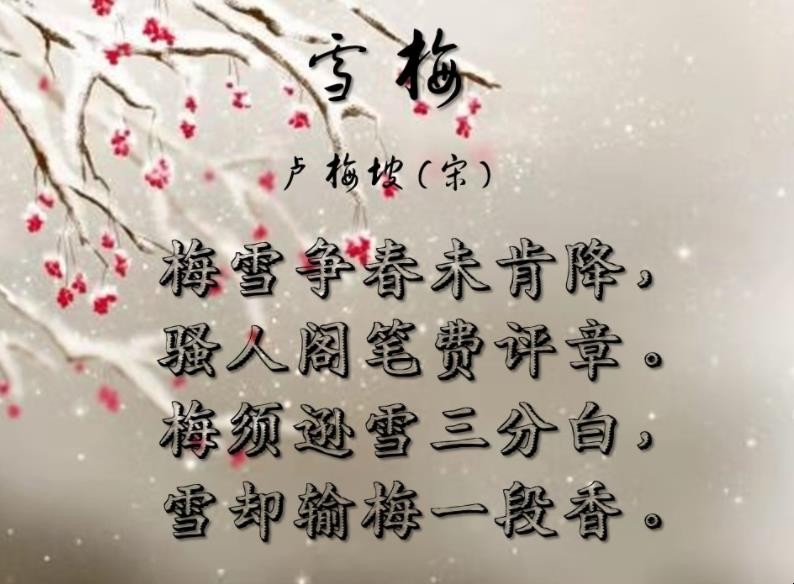 雪梅
卢梅坡(宋)
梅雪争春未肯降，
骚人阁笔费评章。
梅须逊雪三分白，
雪却输梅一段香。